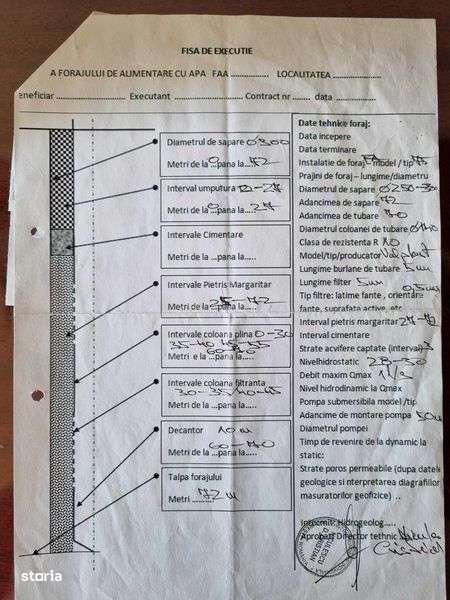 FISA DE EXECUTIE
A FORAJULUI DE ALIMENTARE CU APA FAA .................. LOCALITATEA .......................
eneficiar ................................ Executant ........................... Contract nr ........ data ..................
Diametrul de sapare Ø300
Metri de la 0 pana la 72
Interval umputura 0-27
Metri de la 0 pana la 27
Intervale Cimentare
Metri de la ....pana la.....
Intervale Pietris Margaritar
Metri de la pana la 72
Intervale coloana plina 0-30
35-40 45-55
Metri e la ...pana la.....
Intervale coloana filtranta
30-35/40-45
Metri de la ...pana la.....
Decantor 10 m
60-70
Metri de la ...pana la.....
Talpa forajului
Metri 72 m
Date tehnice foraj:
Data incepere
Data terminare
Instalatie de foraj model / tip
Prajini de foraj – lungime/diametru
Diametrul de sapare Ø250-300
Adancimea de sapare 72
Adancimea de tubare 70
Diametrul coloanei de tubare Ø140
Clasa de rezistenta R 10
Model/tip/producator Valplast
Lungime burlane de tubare 5m
Lungime filter 5m
Tip filtre: latime fante , orientare 0,5mm
fante, suprafata active, etc
Interval pietris margaritar 27-72
Interval cimentare
Strate acvifere captate (interval) 3
Nivelhidrostatic 28-30
Debit maxim Qmax
Nivel hidrodinamic la Qmax
Pompa submersibila model /tip
Adancime de montare pompa 50m
Diametrul pompei
Timp de revenire de la dynamic la
static:
Strate poros permeabile (dupa datele
geologice si interpretarea diagrafiilor
masuratorilor geofizice) ..
Intocmit: Hidrogeolog.....
Aprobat: Director tehnic
storia